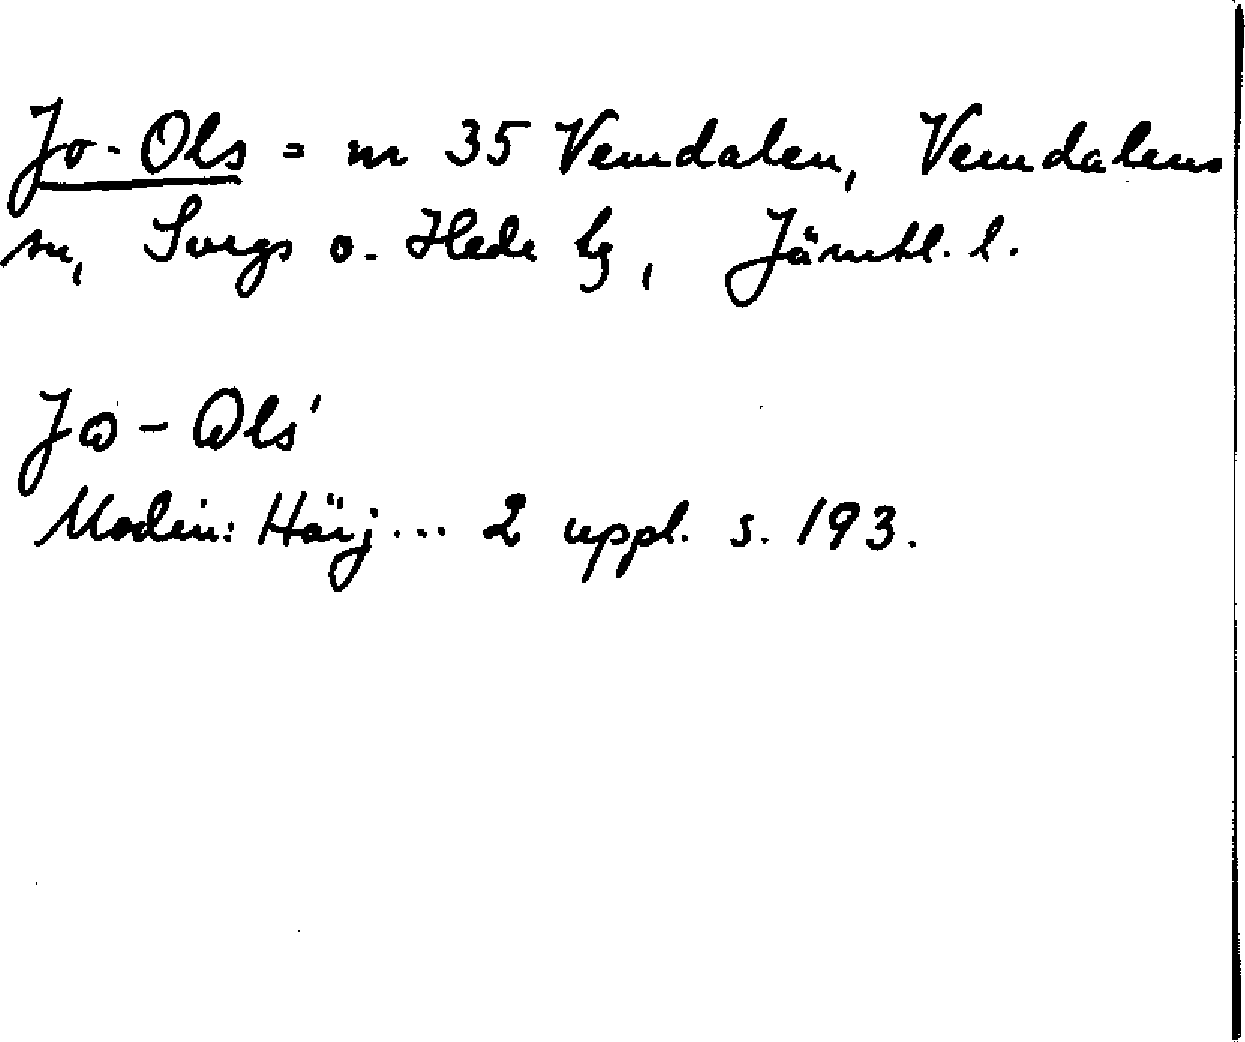 Jo-Ols = nr 35 Vemdalen, Vemdalens
sn, Svegs o. Hede tg, Jämtl. l.
Jo - Ols'
Modin: Härj... 2 uppl. s. 193.